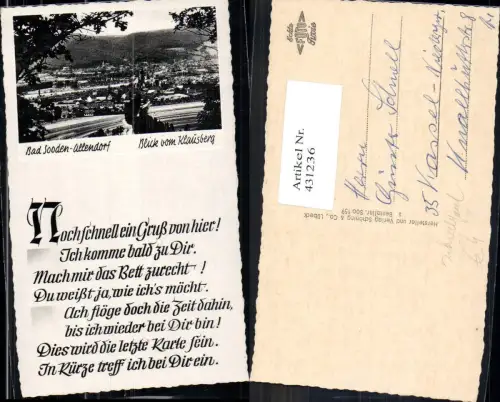 Bad Sooden-Allendorf Blick vom Klausberg
Noch schnell ein Gruß von hier!
Ich komme bald zu Dir.
Mach mir das Bett zurecht!
Du weißt ja, wie ich's möcht.
Ach flöge doch die Zeit dahin,
bis ich wieder bei Dir bin!
Dies wird die letzte Karte sein.
In Kürze treff ich bei Dir ein.
Artikel Nr.
431236
Herrn
Günter Schnell
35 Kassel-
Hersteller und Verlag Schöning & Co., Lübeck